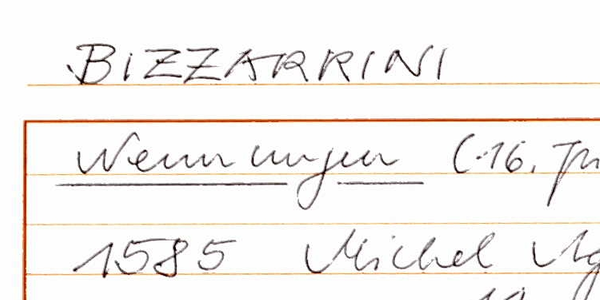 BIZZARRINI
Nennungen (16. Jh
1585 Michel Ag